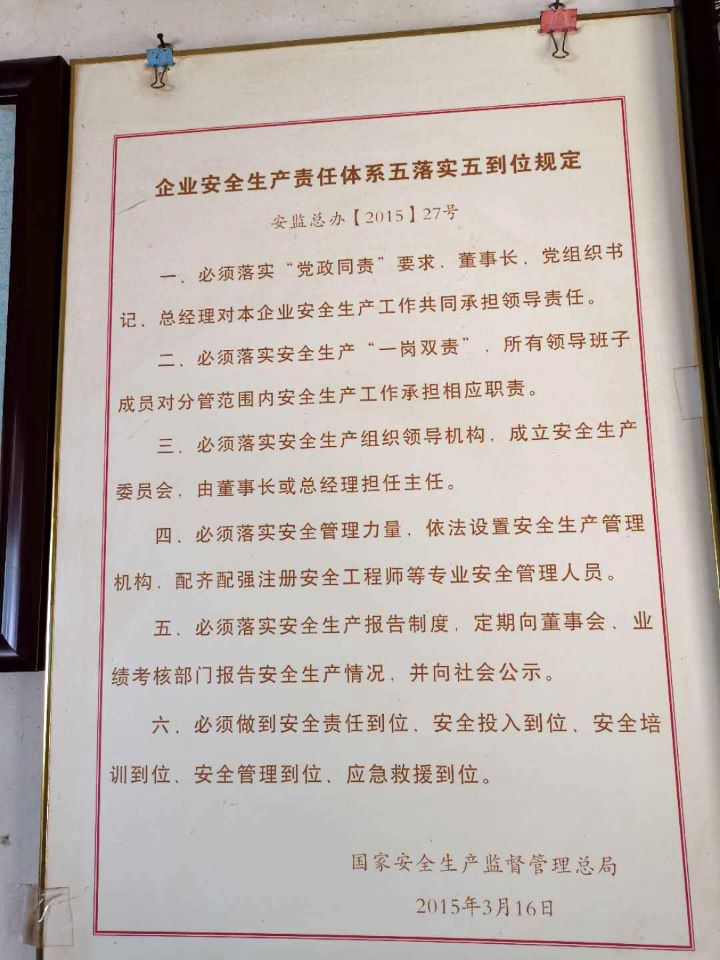 企业安全生产责任体系五落实五到位规定
安监总办【2015】27号
一、必须落实“党政同责”要求，董事长、党组织书
记、总经理对本企业安全生产工作共同承担领导责任。
二、必须落实安全生产“一岗双责”，所有领导班子
成员对分管范围内安全生产工作承担相应职责。
三、必须落实安全生产组织领导机构，成立安全生产
委员会，由董事长或总经理担任主任。
四、必须落实安全管理力量，依法设置安全生产管理
机构，配齐配强注册安全工程师等专业安全管理人员。
五、必须落实安全生产报告制度，定期向董事会、业
绩考核部门报告安全生产情况，并向社会公示。
六、必须做到安全责任到位、安全投入到位、安全培
训到位、安全管理到位、应急救援到位。
国家安全生产监督管理总局
2015年3月16日